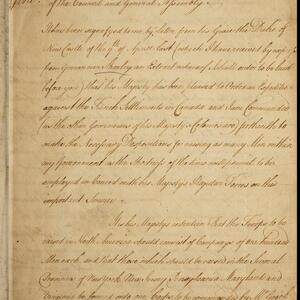 of the Council and General Assembly
It has been signifyed to me by letter from his Grace the Duke of
New Castle of the 9th of April last (which I have received by express
from Governour Shirley an Extract whereof I shall order to be laid
before you) that his Majesty has been pleased to Order an Expedition
against the French Settlements in Canada and I am Commanded
(as the other Governours of his Majestys Colonies are) forthwith to
make the necessary Dispositions for raising as many Men within
my Government as the Shortness of the time will permit to be
employed in Concert with his Majestys Regular Forces on this
important Service
It is his Majestys intention that the Troops to be
raised in North America should consist of Companys of One hundred
Men each and that those which should be raised in the several
Provinces of New York New Jersey Pensylvania Maryland and
Virginia be formed into one Corps to be Commanded by